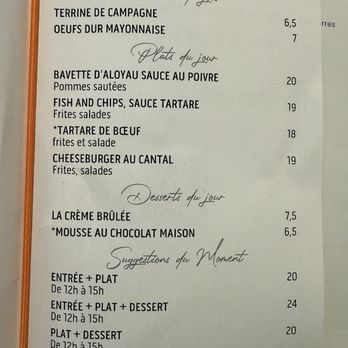 TERRINE DE CAMPAGNE 6,5
OEUFS DUR MAYONNAISE 7
Plats du jour
BAVETTE D'ALOYAU SAUCE AU POIVRE 20
Pommes sautées
FISH AND CHIPS, SAUCE TARTARE 19
Frites salades
*TARTARE DE BŒUF 18
frites et salade
CHEESEBURGER AU CANTAL 19
Frites, salades
Desserts du jour
LA CRÈME BRÛLÉE 7,5
*MOUSSE AU CHOCOLAT MAISON 6,5
Suggestions du Moment
ENTRÉE + PLAT 20
De 12h à 15h
ENTRÉE + PLAT + DESSERT 24
De 12h à 15h
PLAT + DESSERT 20
De 12h à 15h